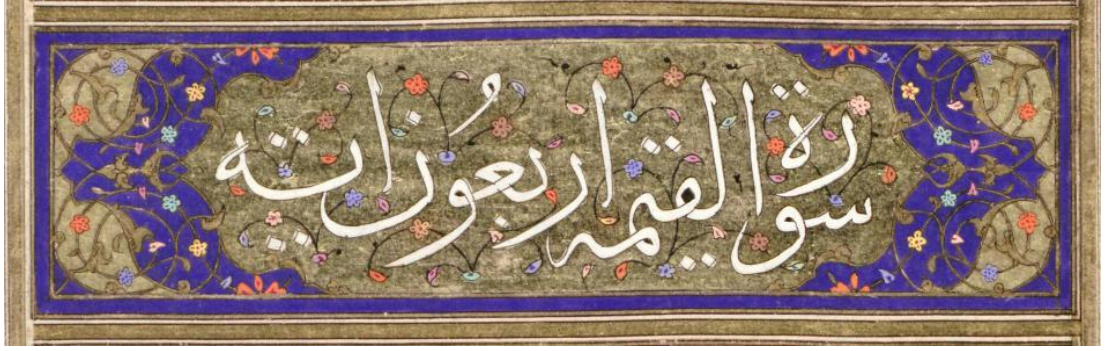 سورة القيمة اربعون اية